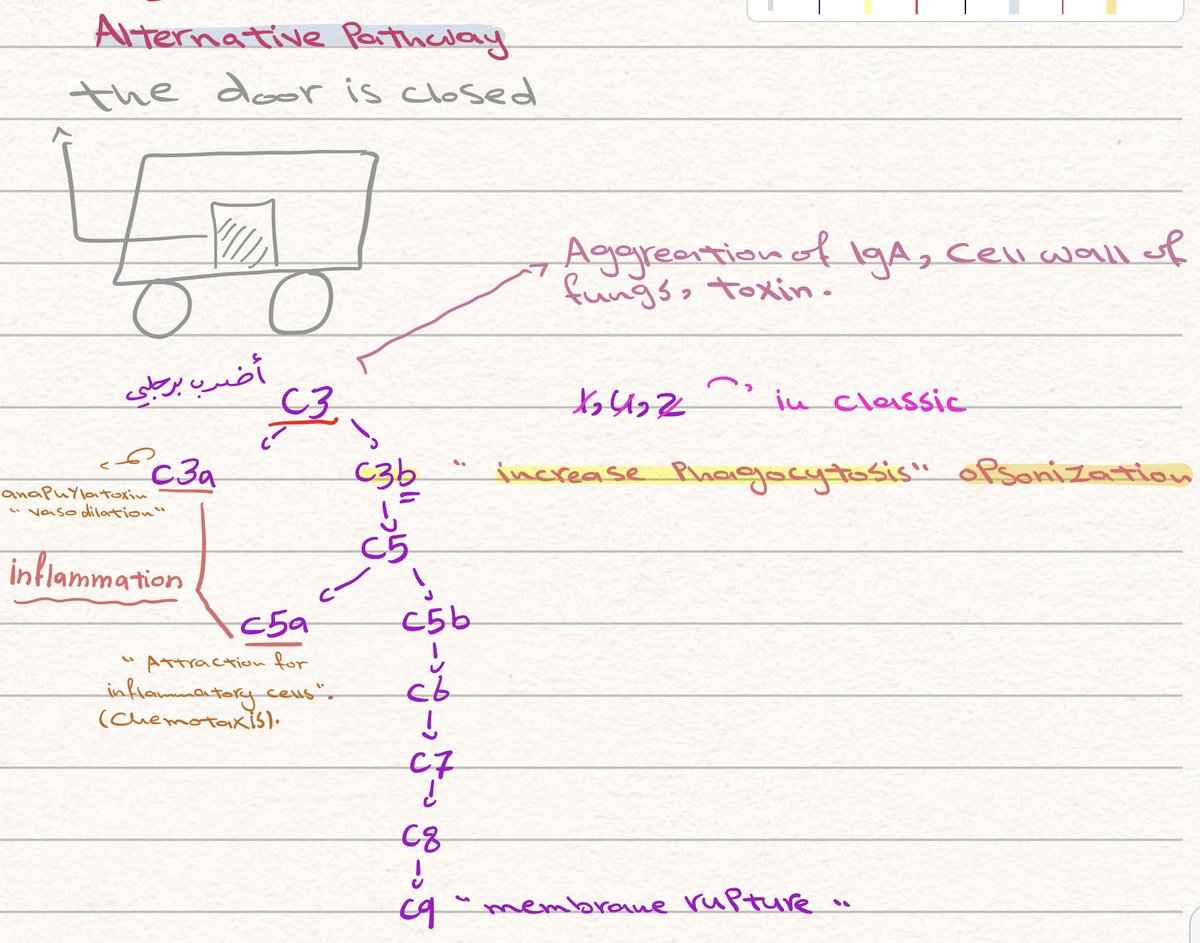 Alternative Pathway
the door is closed
Aggreartion of IgA, Cell wall of
fungs, toxin.
أضرب برجلي
C3
1, 4, 2 in classic
C3a
C3b "increase Phagocytosis" opsonization
anaphylatoxin
"vasodilation"
C5
inflammation
C5a
C5b
"Attraction for
inflammatory cells".
(Chemotaxis).
C6
C7
C8
C9 "membrane rupture"